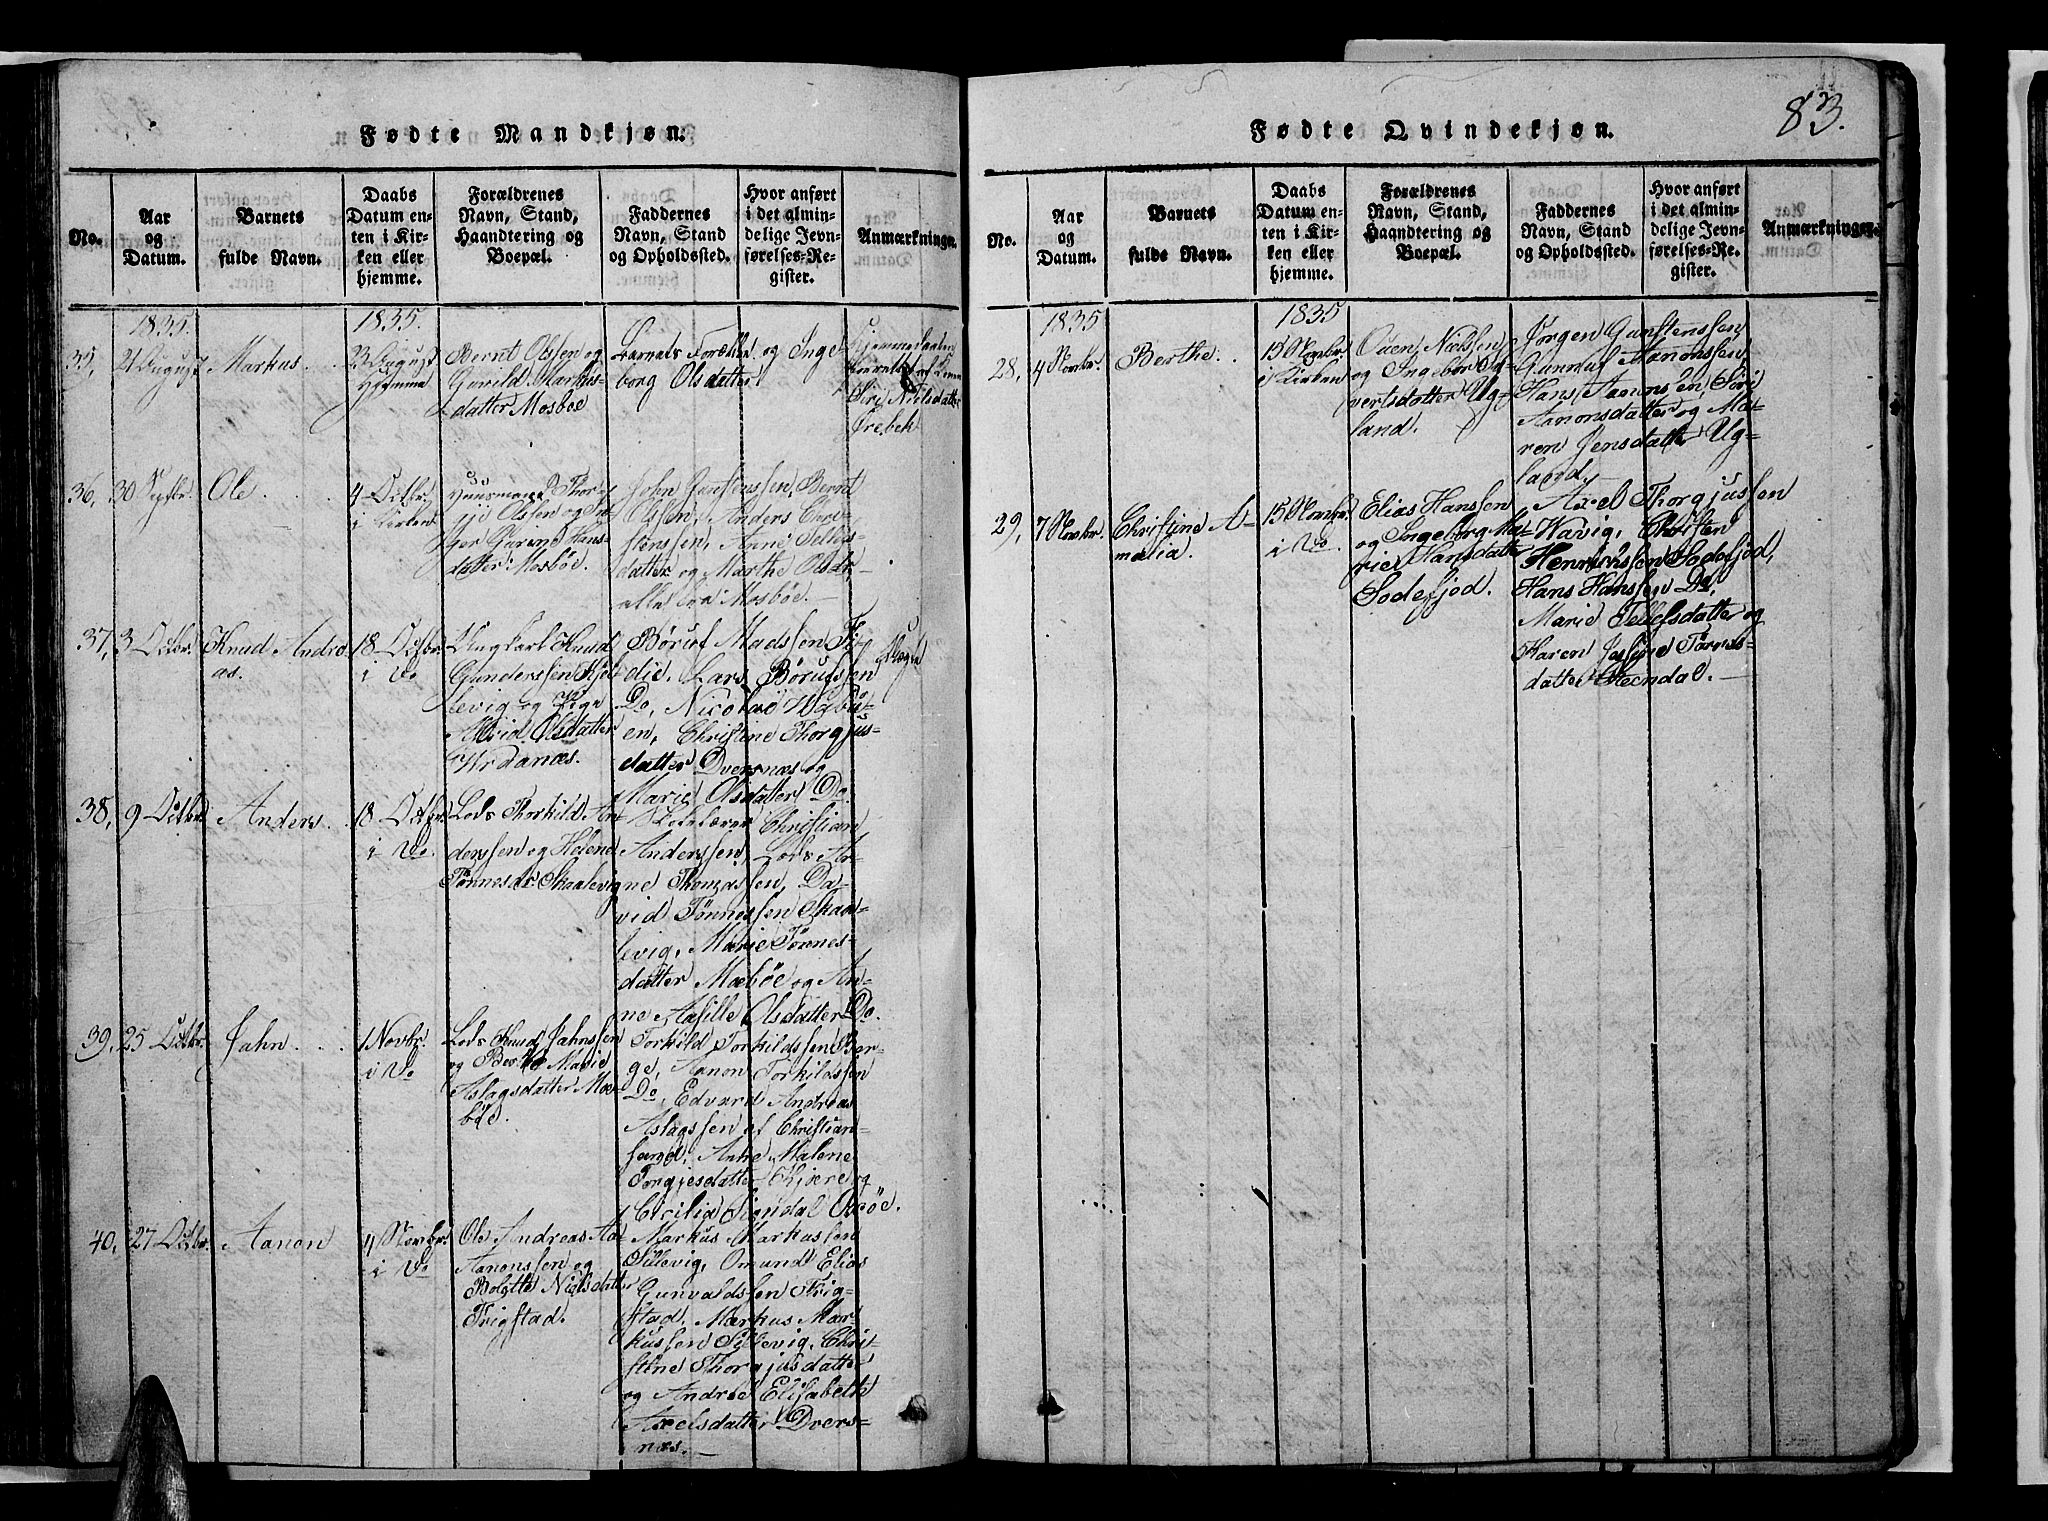 Fødte Mandkjøn.
No.
Aar
og
Datum.
Barnets
fulde Navn.
Daabs
Datum en-
ten i Kir-
ken eller
hjemme.
Forældrenes
Navn, Stand,
Haandtering og
Boepæl.
Faddernes
Navn, Stand
og Opholdssted.
Hvor anført
i det almin-
delige Jevn-
førelses-Re-
gister.
Anmærkninger.
1835.
35,
21 August
Markus.
1835.
23 August
Hjemme
Bernt Olssen og
Gunild Markus-
datter Mosböe
Barnets Forældre og Inge-
borg Olsdatter
Hjemmedaaben
forrettet af
Siri Nielsdatter
Ørebek
36,
30 Septbr.
Ole
4 Octbr.
i Kirken
Huusmand Thor-
Olssen og In-
ger Gurine Hans-
datter Mosböe.
John Jenssen, Bernt
Olssen, Anders Chri-
stenssen, Anne Tellefs-
datter og Marthe Olsdr.
alle fra Mosböe.
37,
3 Octbr.
Knud Andre-
as.
18 Octbr.
i Do
Ungkarl Knud
Gunderssen Kjöl-
levig og Pige
Olsdatter
Böruf Madssen Fi-
die, Lars Börufssen
Do, Nicolai
en, Christine Thorgjus-
datter Dversnæs og
Marie Olsdatter Do
Uægte
38,
9 Octbr.
Anders.
18 Octbr.
i Do.
Lods Thorkild An-
derssen og Helene
Tönnesdr. Skaalevig
Skolelærer Christian
Anderssen, Lods Ar-
ne Thomassen, Da-
vid Tönnessen Skaa-
levig, Marie Tönnes-
datter Mæböe og An-
ne Asille Olsdatter Do.
39,
25 Octbr.
Jahn
1 Novbr.
i Do
Lods Knud Jahnssen
og Berthe Marie
Aslagsdatter Mæ-
böe.
Torkild Torkildssen Ber-
ge, Aanon Torkildssen
Do, Edvard Andreas
Aslagssen af Christian-
sand, Anne Malene
Torgjesdatter Kjære og
Cicilia Signdal
40,
27 Octbr.
Aanon
4 Novbr.
i Do
Ole Andreas Aa-
Aanonssen og
Bolette Nielsdatter
Trigstad.
Markus Markussen
Sillevig, Omund Elias
Gunvaldssen Trig-
stad, Markus Mar-
kussen Sillevig, Chri-
stine Thorgjusdatter
og Andrea Elisabeth
Axelsdatter Dvers-
næs.
83.
Fødte Qvindekjøn.
No.
Aar
og
Datum.
Barnets
fulde Navn.
Daabs
Datum en-
ten i Kir-
ken eller
hjemme.
Forældrenes
Navn, Stand,
Haandtering og
Boepæl.
Faddernes
Navn, Stand
og Opholdssted.
Hvor anført
i det almin-
delige Jevn-
førelses-Re-
gister.
Anmærkninger.
1835
28,
4 Novbr.
Berthe.
1835
15 Novbr.
i Kirken
Ouen Nielssen
og Ingebor Sy-
vertsdatter Ug-
land.
Jörgen Gunstenssen,
Gunuf Aanonssen,
Hans Aanonssen, Siri
Aanonsdatter og Ma-
ren Jensdatter Ug-
land.
29,
7 Novbr.
Christine A-
malia.
15 Novbr.
i Do
Elias Hanssen
og Ingeborg Ma-
rie Hansdatter
Sodefjed.
Axel Thorgjussen
Waavig, Christen
Henrichssen Sodefjed,
Hans Hanssen Do,
Marie Tellefsdatter og
Karen Tönnes-
datter Steendal.